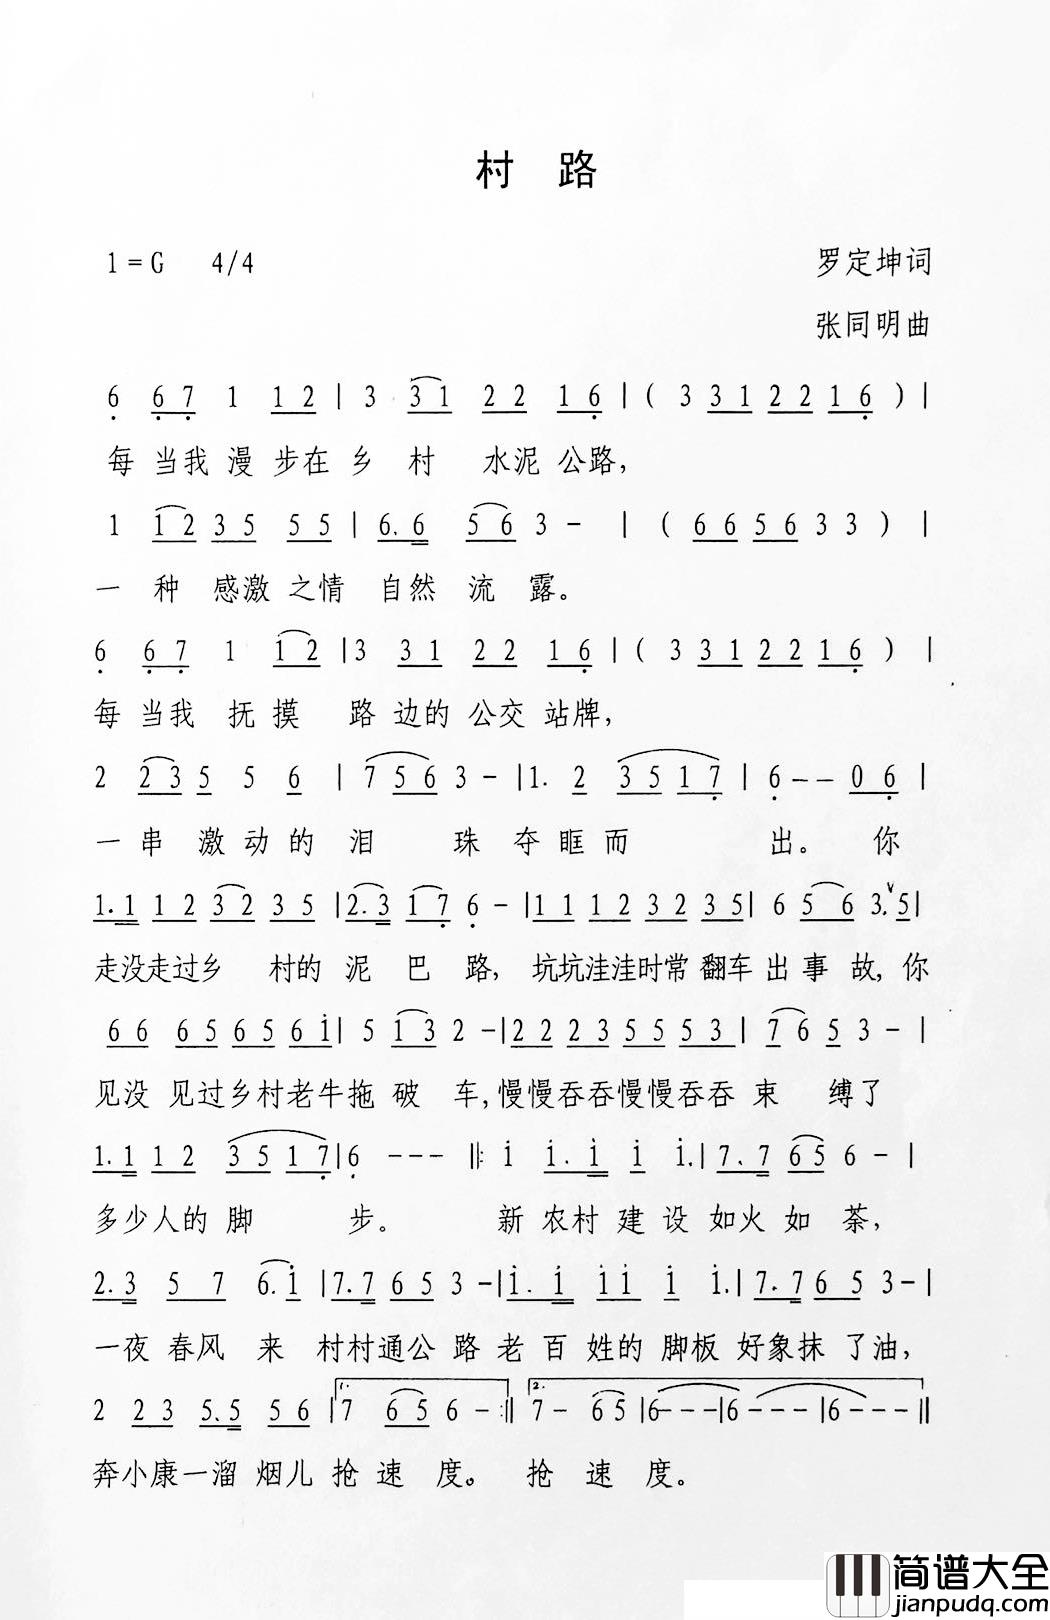 村 路
1=G 4/4 罗定坤词
张同明曲
6 67 1 12 | 3 31 22 16 | ( 3 31 22 16 ) |
每 当我 漫 步在 乡 村 水泥 公路,
1 12 35 55 | 6.6 56 3 - | ( 66 56 3 3 ) |
一 种 感激 之情 自然 流 露。
6 67 1 12 | 3 31 22 16 | ( 3 31 22 16 ) |
每 当我 抚 摸 路 边的 公交 站牌,
2 23 5 5 6 | 7 56 3 - | 1. 2 3517 | 6 - - 0 6 |
一 串 激 动 的 泪 珠 夺 眶 而 出。 你
1.1 12 32 35 | 2.3 17 6 - | 11 12 32 35 | 6 56 3. 5 |
走没走过乡 村的 泥 巴 路, 坑坑洼洼时常 翻车 出 事 故, 你
66 65 65 6i | 5 13 2 - | 22 23 55 53 | 7 6 5 3 - |
见没 见过乡村老牛拖 破 车,慢慢吞吞慢慢吞吞 束 缚了
1.1 12 3517 | 6 - - - ‖: i i. i i i. | 7.7 65 6 - |
多少人的 脚 步。 新 农村 建 设 如火 如 荼,
2.3 5 7 6. i | 7.7 65 3 - | i. i ii i i. | 7.7 65 3 - |
一夜 春风 来 村村通公 路 老 百 姓的 脚板 好象抹 了油,
2 23 5.5 56 | 1. 7 65 6 - :‖ 2. 7 - 65 | 6 - - - | 6 - - - | 6 - - - ‖
奔小康一溜 烟儿 抢 速 度。 抢 速 度。
简谱大全
jianpudq.com